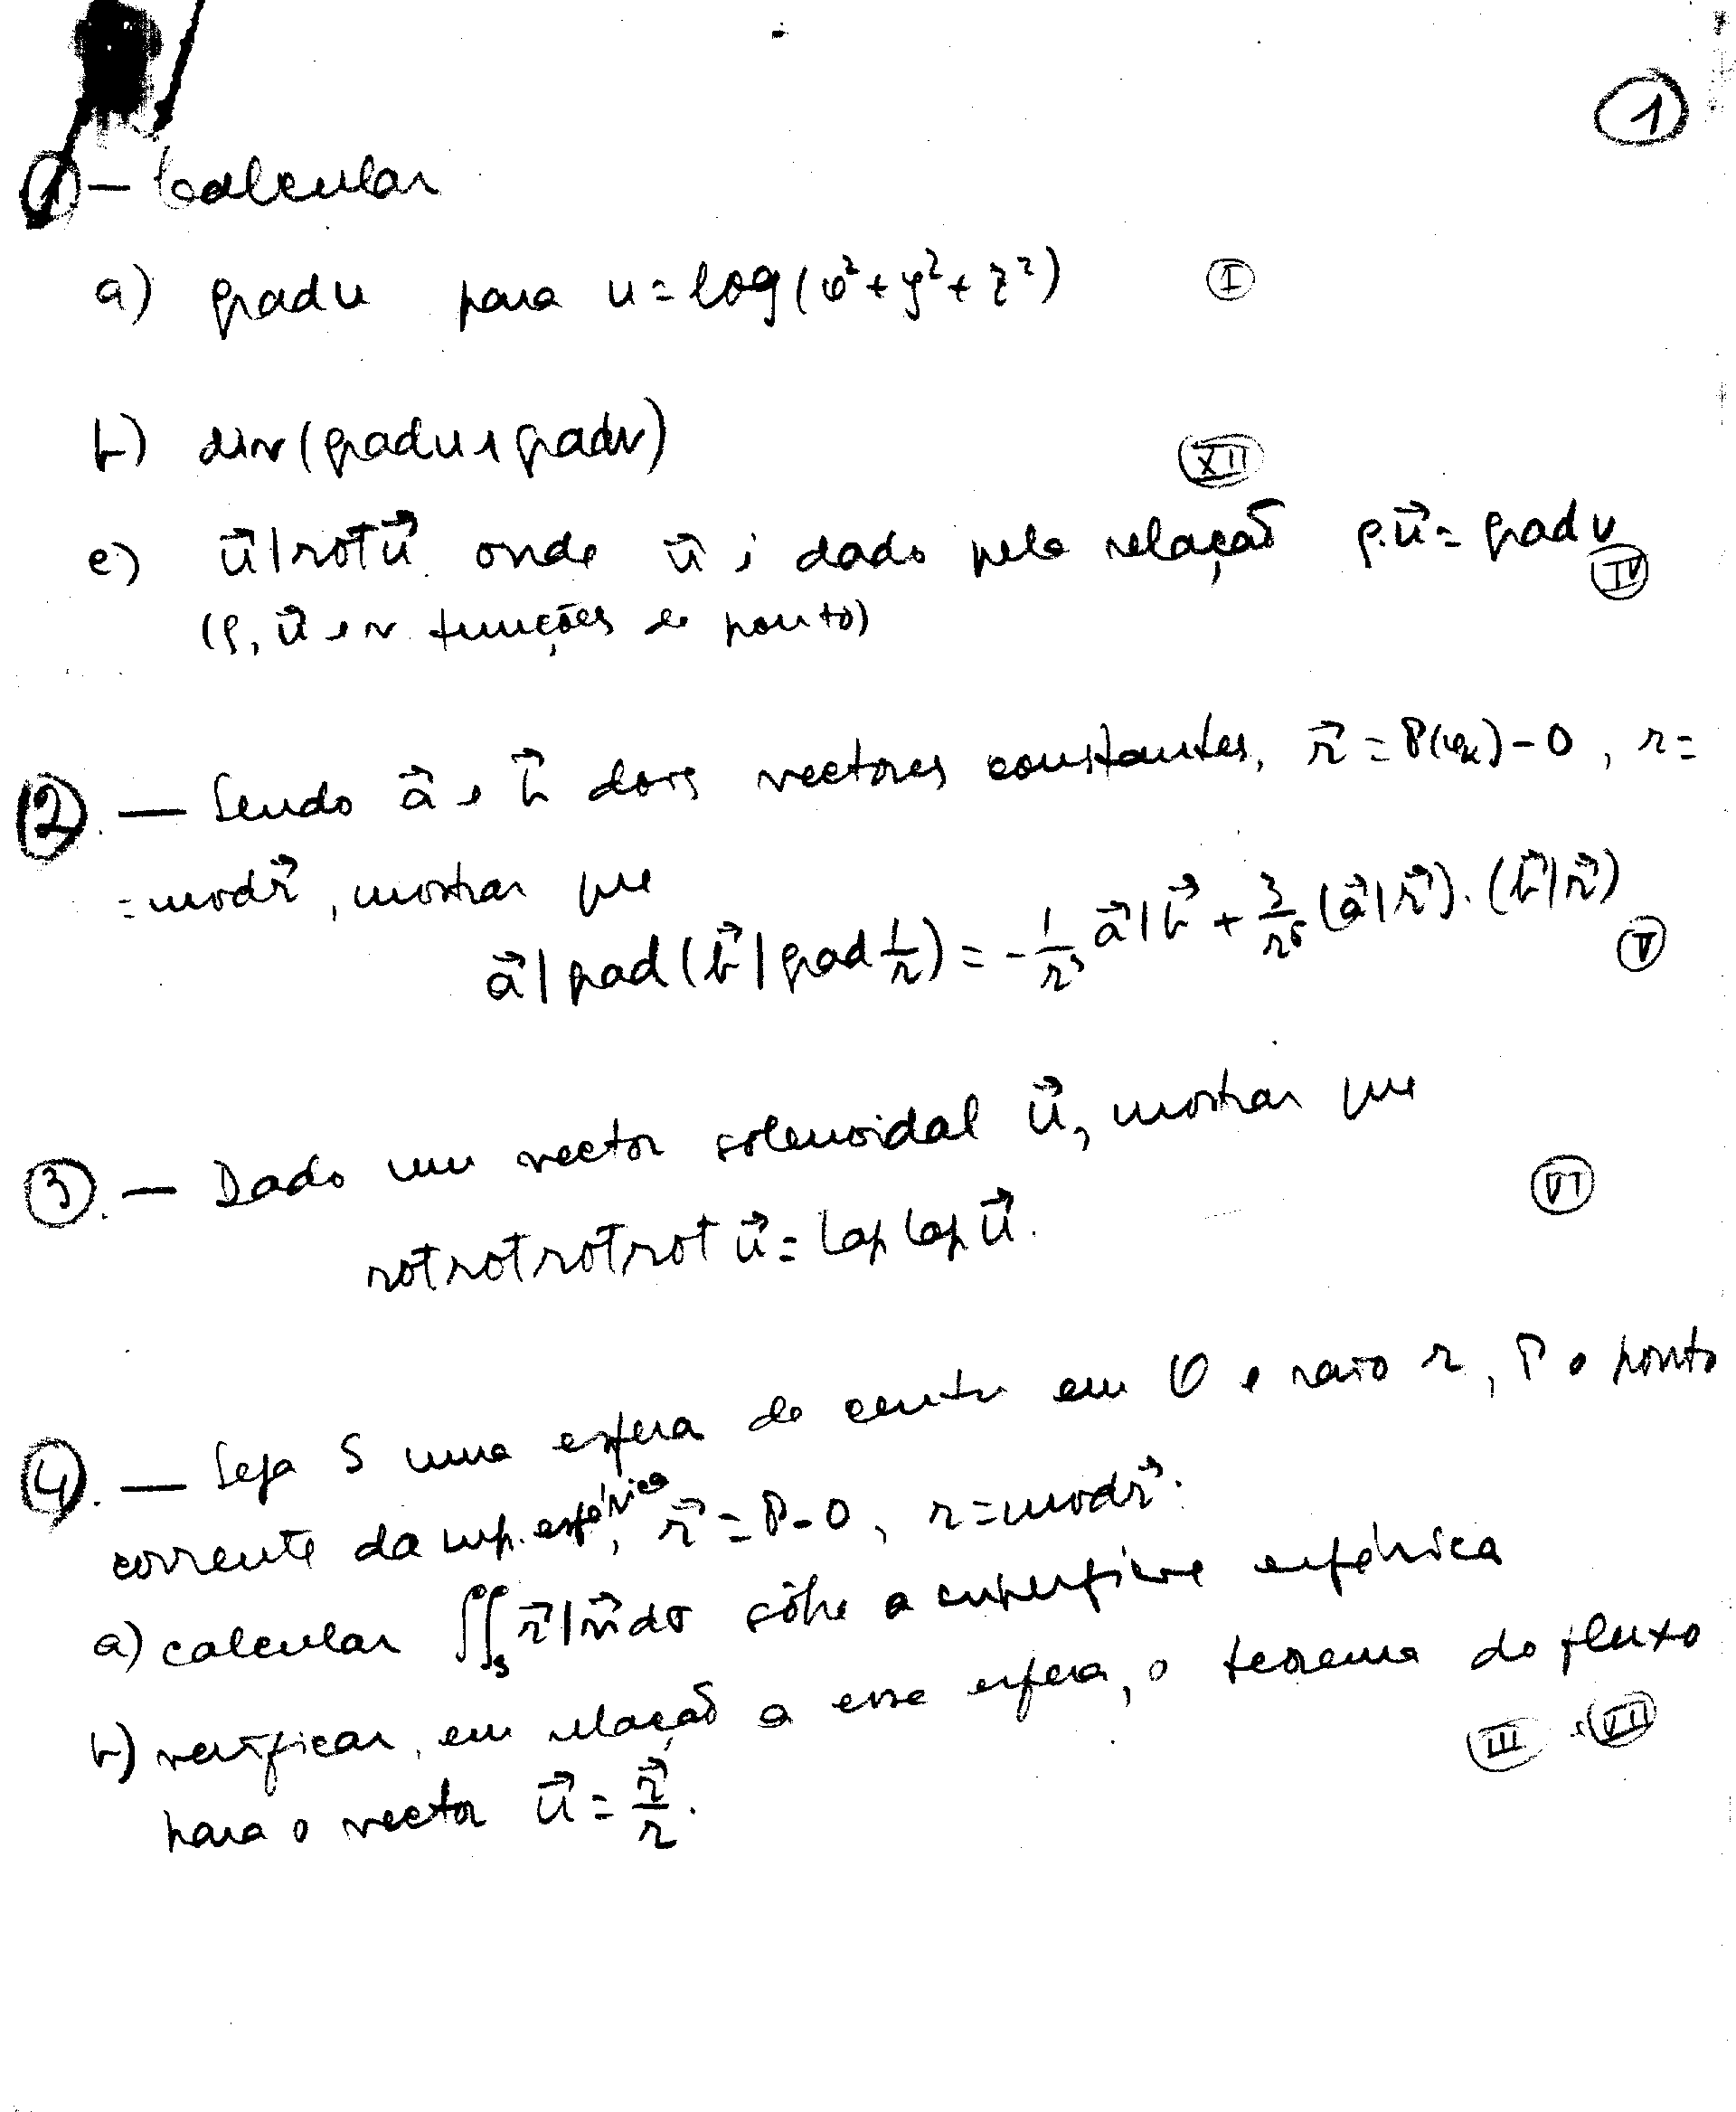 ①
1 - Calcular
a) grad u para u = log(x²+y²+z²) Ⓘ
b) div(grad u ∧ grad v) XII
c) u⃗|rot u⃗ onde u⃗ é dado pela relação ρ.u⃗ = grad v
IV
(ρ, u⃗ e v funções de ponto)
②. — Sendo a⃗ e b⃗ dois vectores constantes, r⃗ = P(x)-O, r=
=mod r⃗, mostrar que
a⃗|grad(b⃗|grad 1/r) = -1/r³ a⃗|b⃗ + 3/r⁵ (a⃗|r⃗).(b⃗|r⃗)
V
③. — Dado um vector solenoidal u⃗, mostrar que
VI
rot rot rot rot u⃗ = lap lap u⃗.
④. — Seja S uma esfera de centro em O e raio r, P o ponto
corrente da sup. esférica, r⃗ = P-O, r = mod r⃗.
a) calcular ∬ₛ r⃗|n⃗ dσ sôbre a superfície esférica
b) verificar, em relação a essa esfera, o teorema do fluxo
III e VII
para o vector u⃗ = r⃗/r.